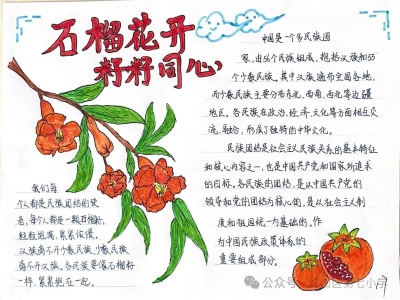 石榴花开
籽籽同心
中国是一个多民族国
家,由56个民族组成,包括汉族和55
个少数民族。其中汉族遍布全国各地,
而少数民族主要分布东北、西南、西北等边疆
地区。各民族在政治、经济、文化等方面相互交
流、融合,形成了独特的中华文化。
民族团结是社会主义民族关系的基本特征
和核心内容之一,也是中国共产党和国家所追求
的目标。各民族的团结,是从中国共产党的
领导和党的团结为核心的,是以社会主义制
度和祖国统一为基础的,作
为中国民族政策体系的
重要组成部分。
我们每
个人都是民族团结的使
者,每个人都是一颗石榴籽,
粒粒饱满,紧紧依偎,
汉族离不开少数民族,少数民族
离不开汉族,各民族要像石榴籽
一样,紧紧抱在一起。
公众号
区第七小学